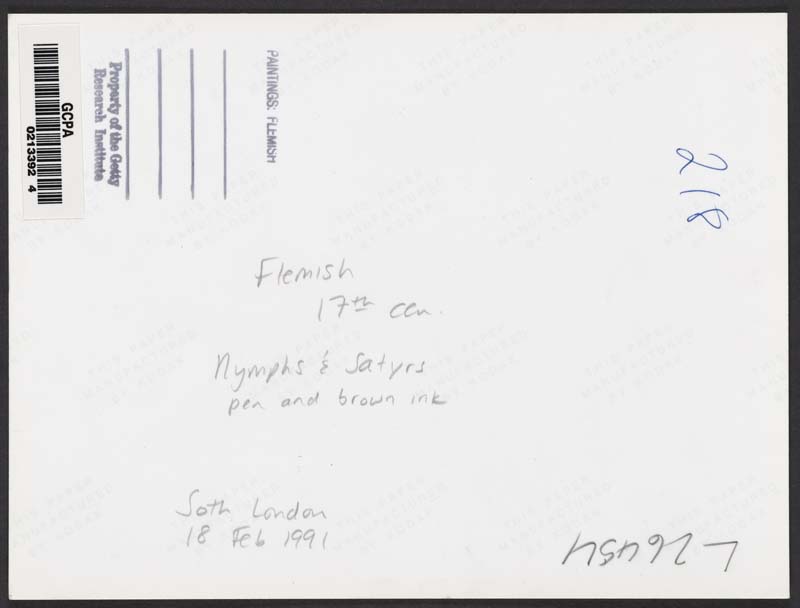 GCPA
0213392 4
Property of the Getty
Research Institute
PAINTINGS: FLEMISH
218
Flemish
17th cen.
Nymphs & Satyrs
pen and brown ink
Soth London
18 Feb 1991
THIS PAPER
MANUFACTURED
BY KODAK